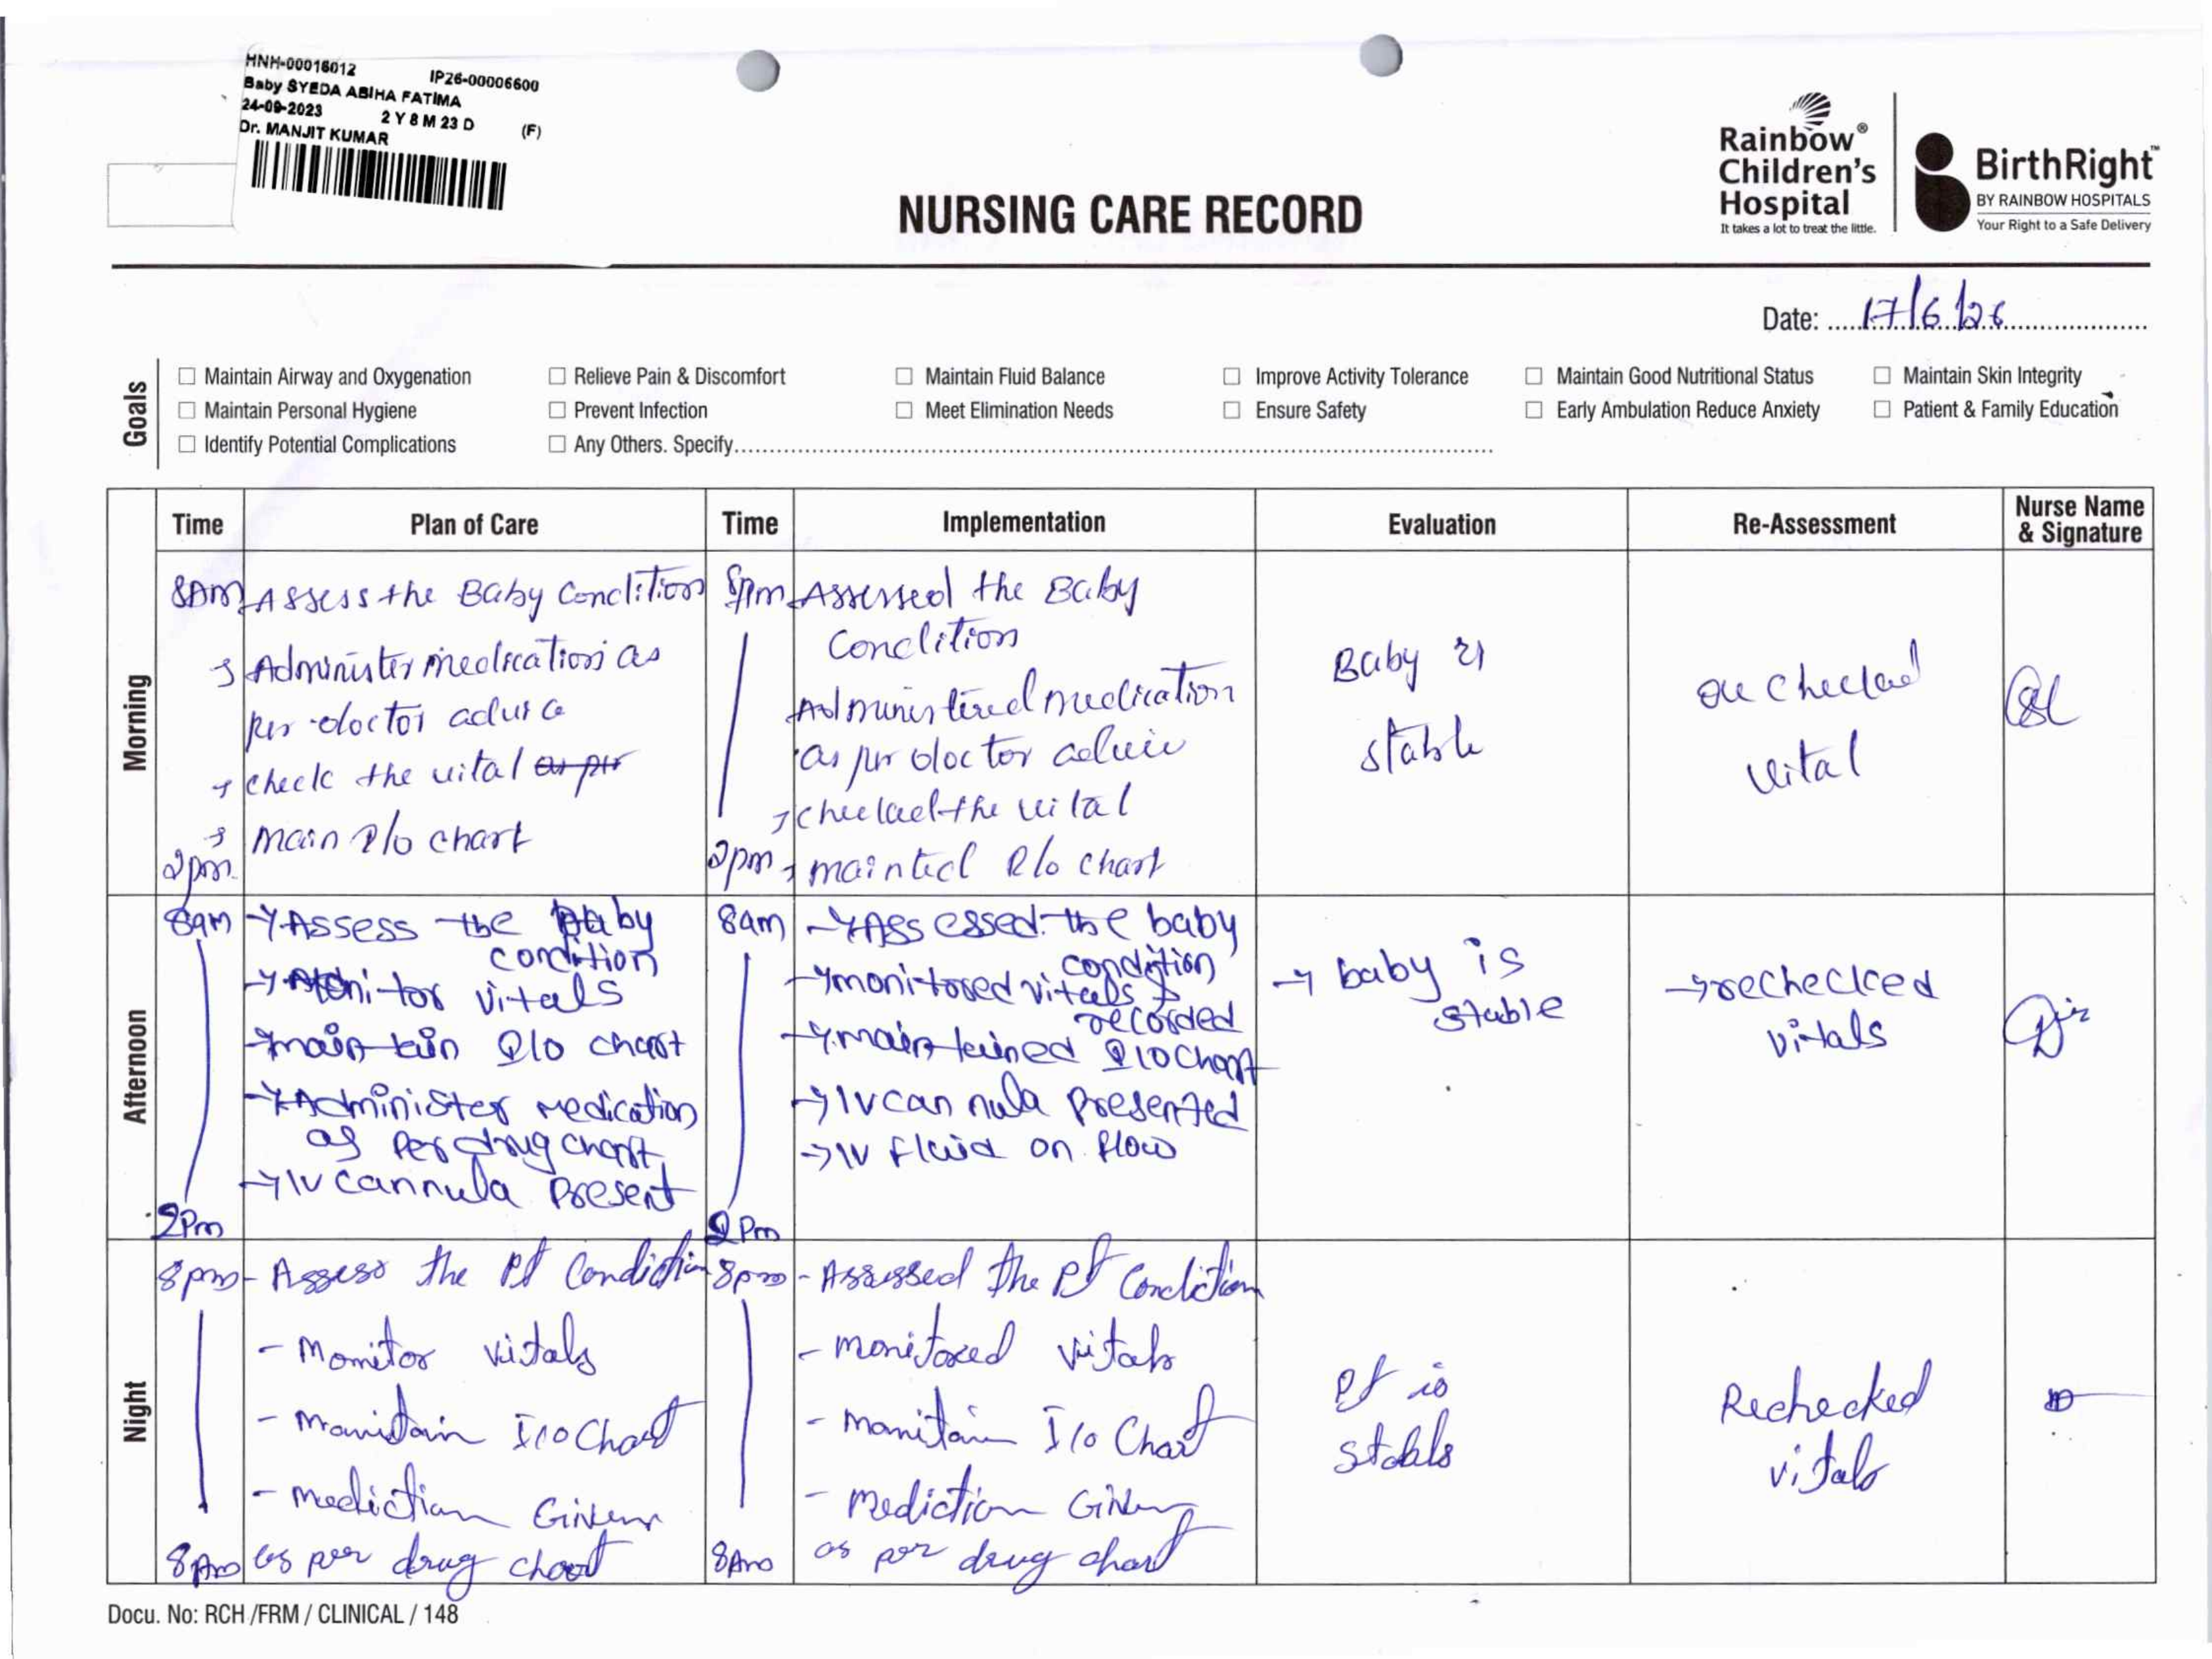 HNH-00016012 IP26-00006600
Baby SYEDA ABIHA FATIMA
24-09-2023 2 Y 8 M 23 D (F)
Dr. MANJIT KUMAR
Rainbow®
Children's
Hospital
It takes a lot to treat the little.
BirthRight™
BY RAINBOW HOSPITALS
Your Right to a Safe Delivery
NURSING CARE RECORD
Date: 17/6/26
Goals
Maintain Airway and Oxygenation Relieve Pain & Discomfort Maintain Fluid Balance Improve Activity Tolerance Maintain Good Nutritional Status Maintain Skin Integrity
Maintain Personal Hygiene Prevent Infection Meet Elimination Needs Ensure Safety Early Ambulation Reduce Anxiety Patient & Family Education
Identify Potential Complications Any Others. Specify
Time Plan of Care Time Implementation Evaluation Re-Assessment Nurse Name & Signature
Morning
8Am Assess the Baby Condition
Administer medication as
per doctor
check the vital as per
main I/o chart
2pm
8pm Assessed the Baby
Condition
Administired medication
as per doctor
the vital
2pm mainted I/o chart
Baby is
stable
vital
Afternoon
8am → Assess the baby
condition
→ Monitor vitals
→ maintain I/O chart
→ Administer medication
as per drug chart
→ IV cannula present
2Pm
8am → Assessed the baby
condition
→ monitored vitals &
recorded
→ maintained I/O chart
→ IV cannula presented
→ IV fluid on flow
2Pm
→ baby is
stable
→ rechecked
vitals
Night
8pm - Assess the Pt Condiction
- Monitor vitals
- Manitain I/O Chart
- mediction Given
8Am as per drug chart
8pm - Assessed the Pt Condition
- monitored vitals
- manitain I/o Chart
- mediction Given
8Am as per drug chart
Pt is
stable
Rechecked
vitals
Docu. No: RCH /FRM / CLINICAL / 148